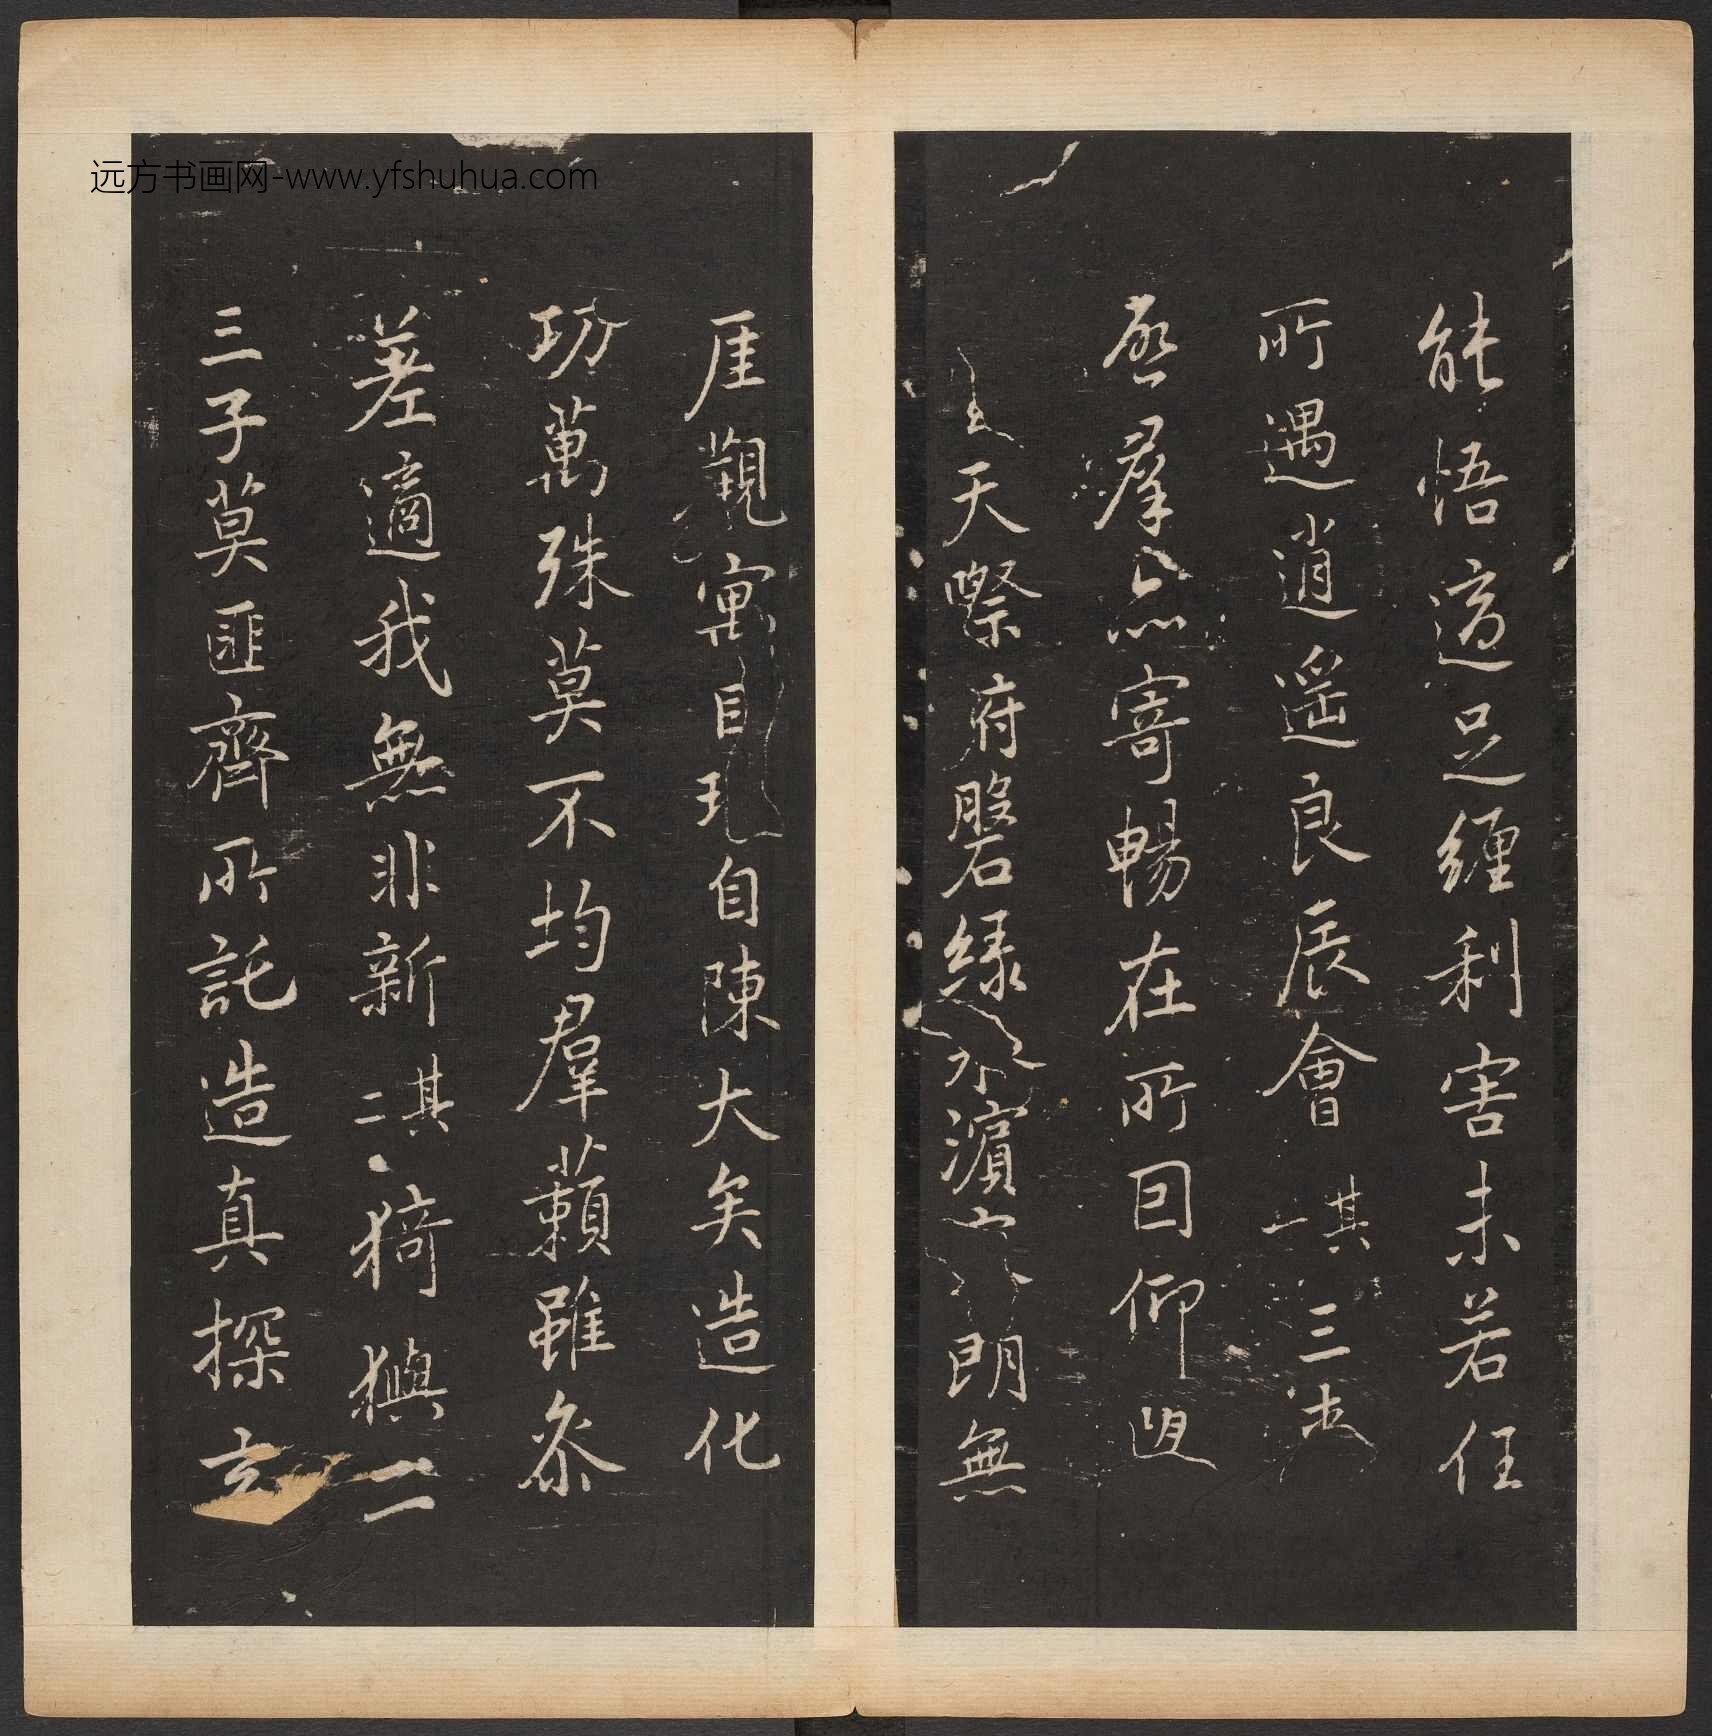 能悟適足纏利害未若任
所遇逍遥良辰會其一三
啓羣寄暢在所囙仰望
天際府磐緑水濱朗無
厓觀寓目理自陳大矣造化
功萬殊莫不均羣藾雖叅
差適我無非新其二猗㺞二
三子莫匪齊所託造真探玄
远方书画网-www.yfshuhua.com